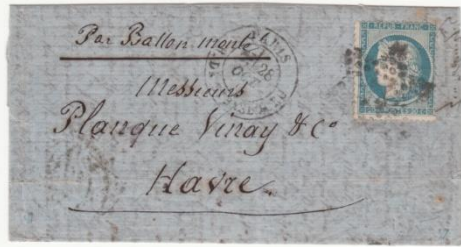 Par Ballon monté
PARIS
REPUB. FRANC.
28
Messieurs
Planque Vinay & Co
Havre